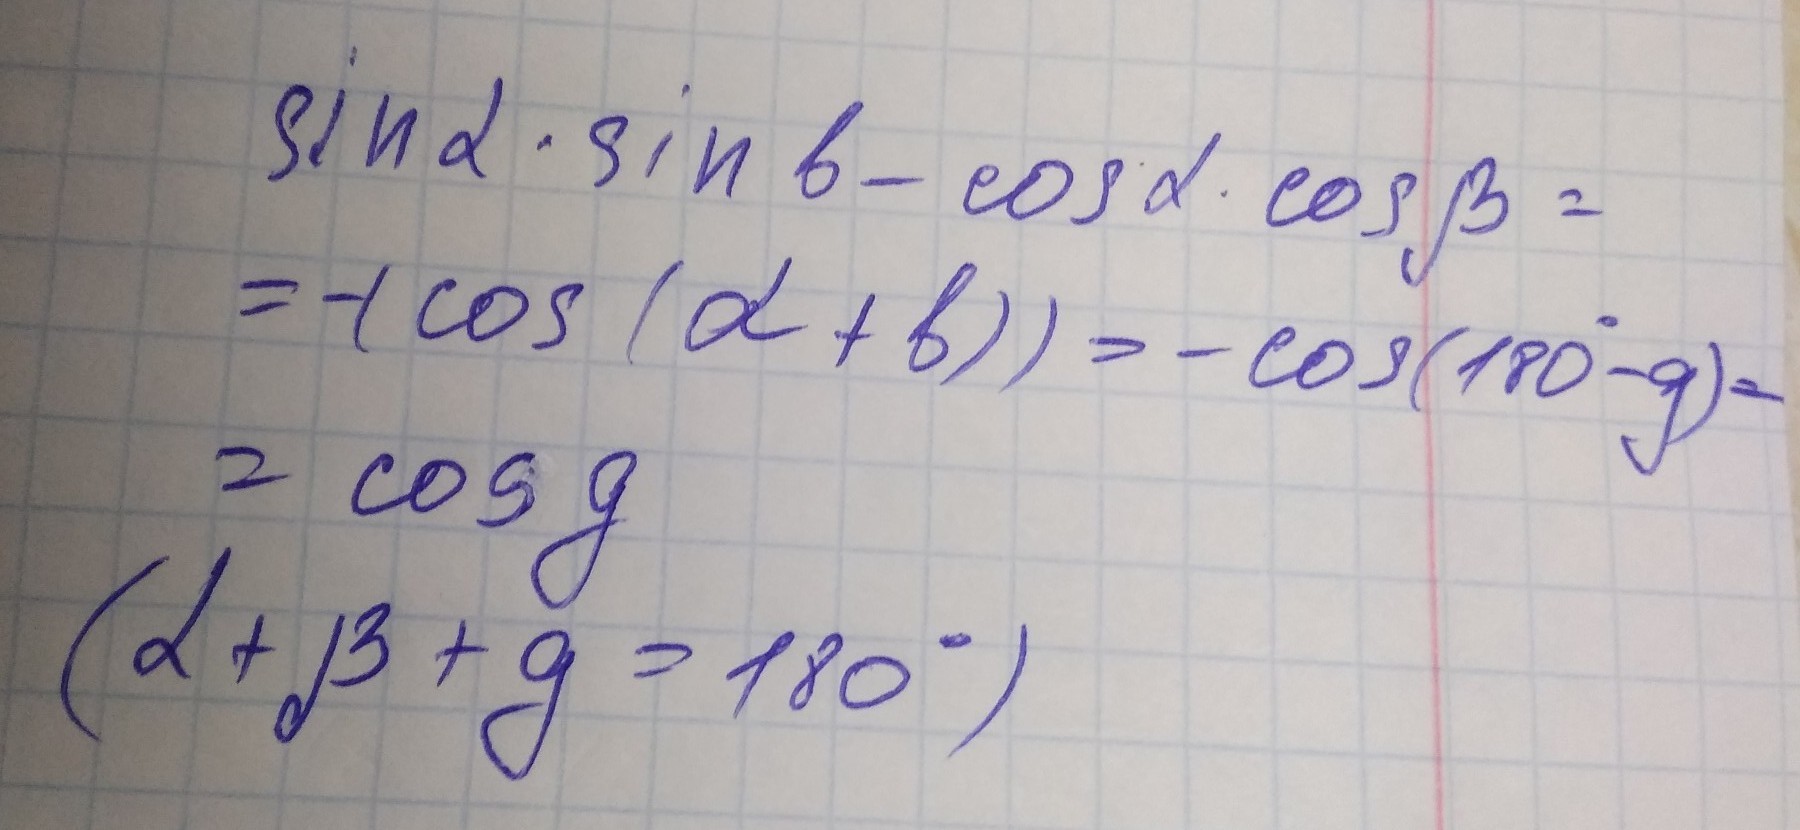 sin α · sin b - cos α · cos β =
= -(cos(α + b)) = -cos(180° - g) =
= cos g
(α + β + g = 180°)